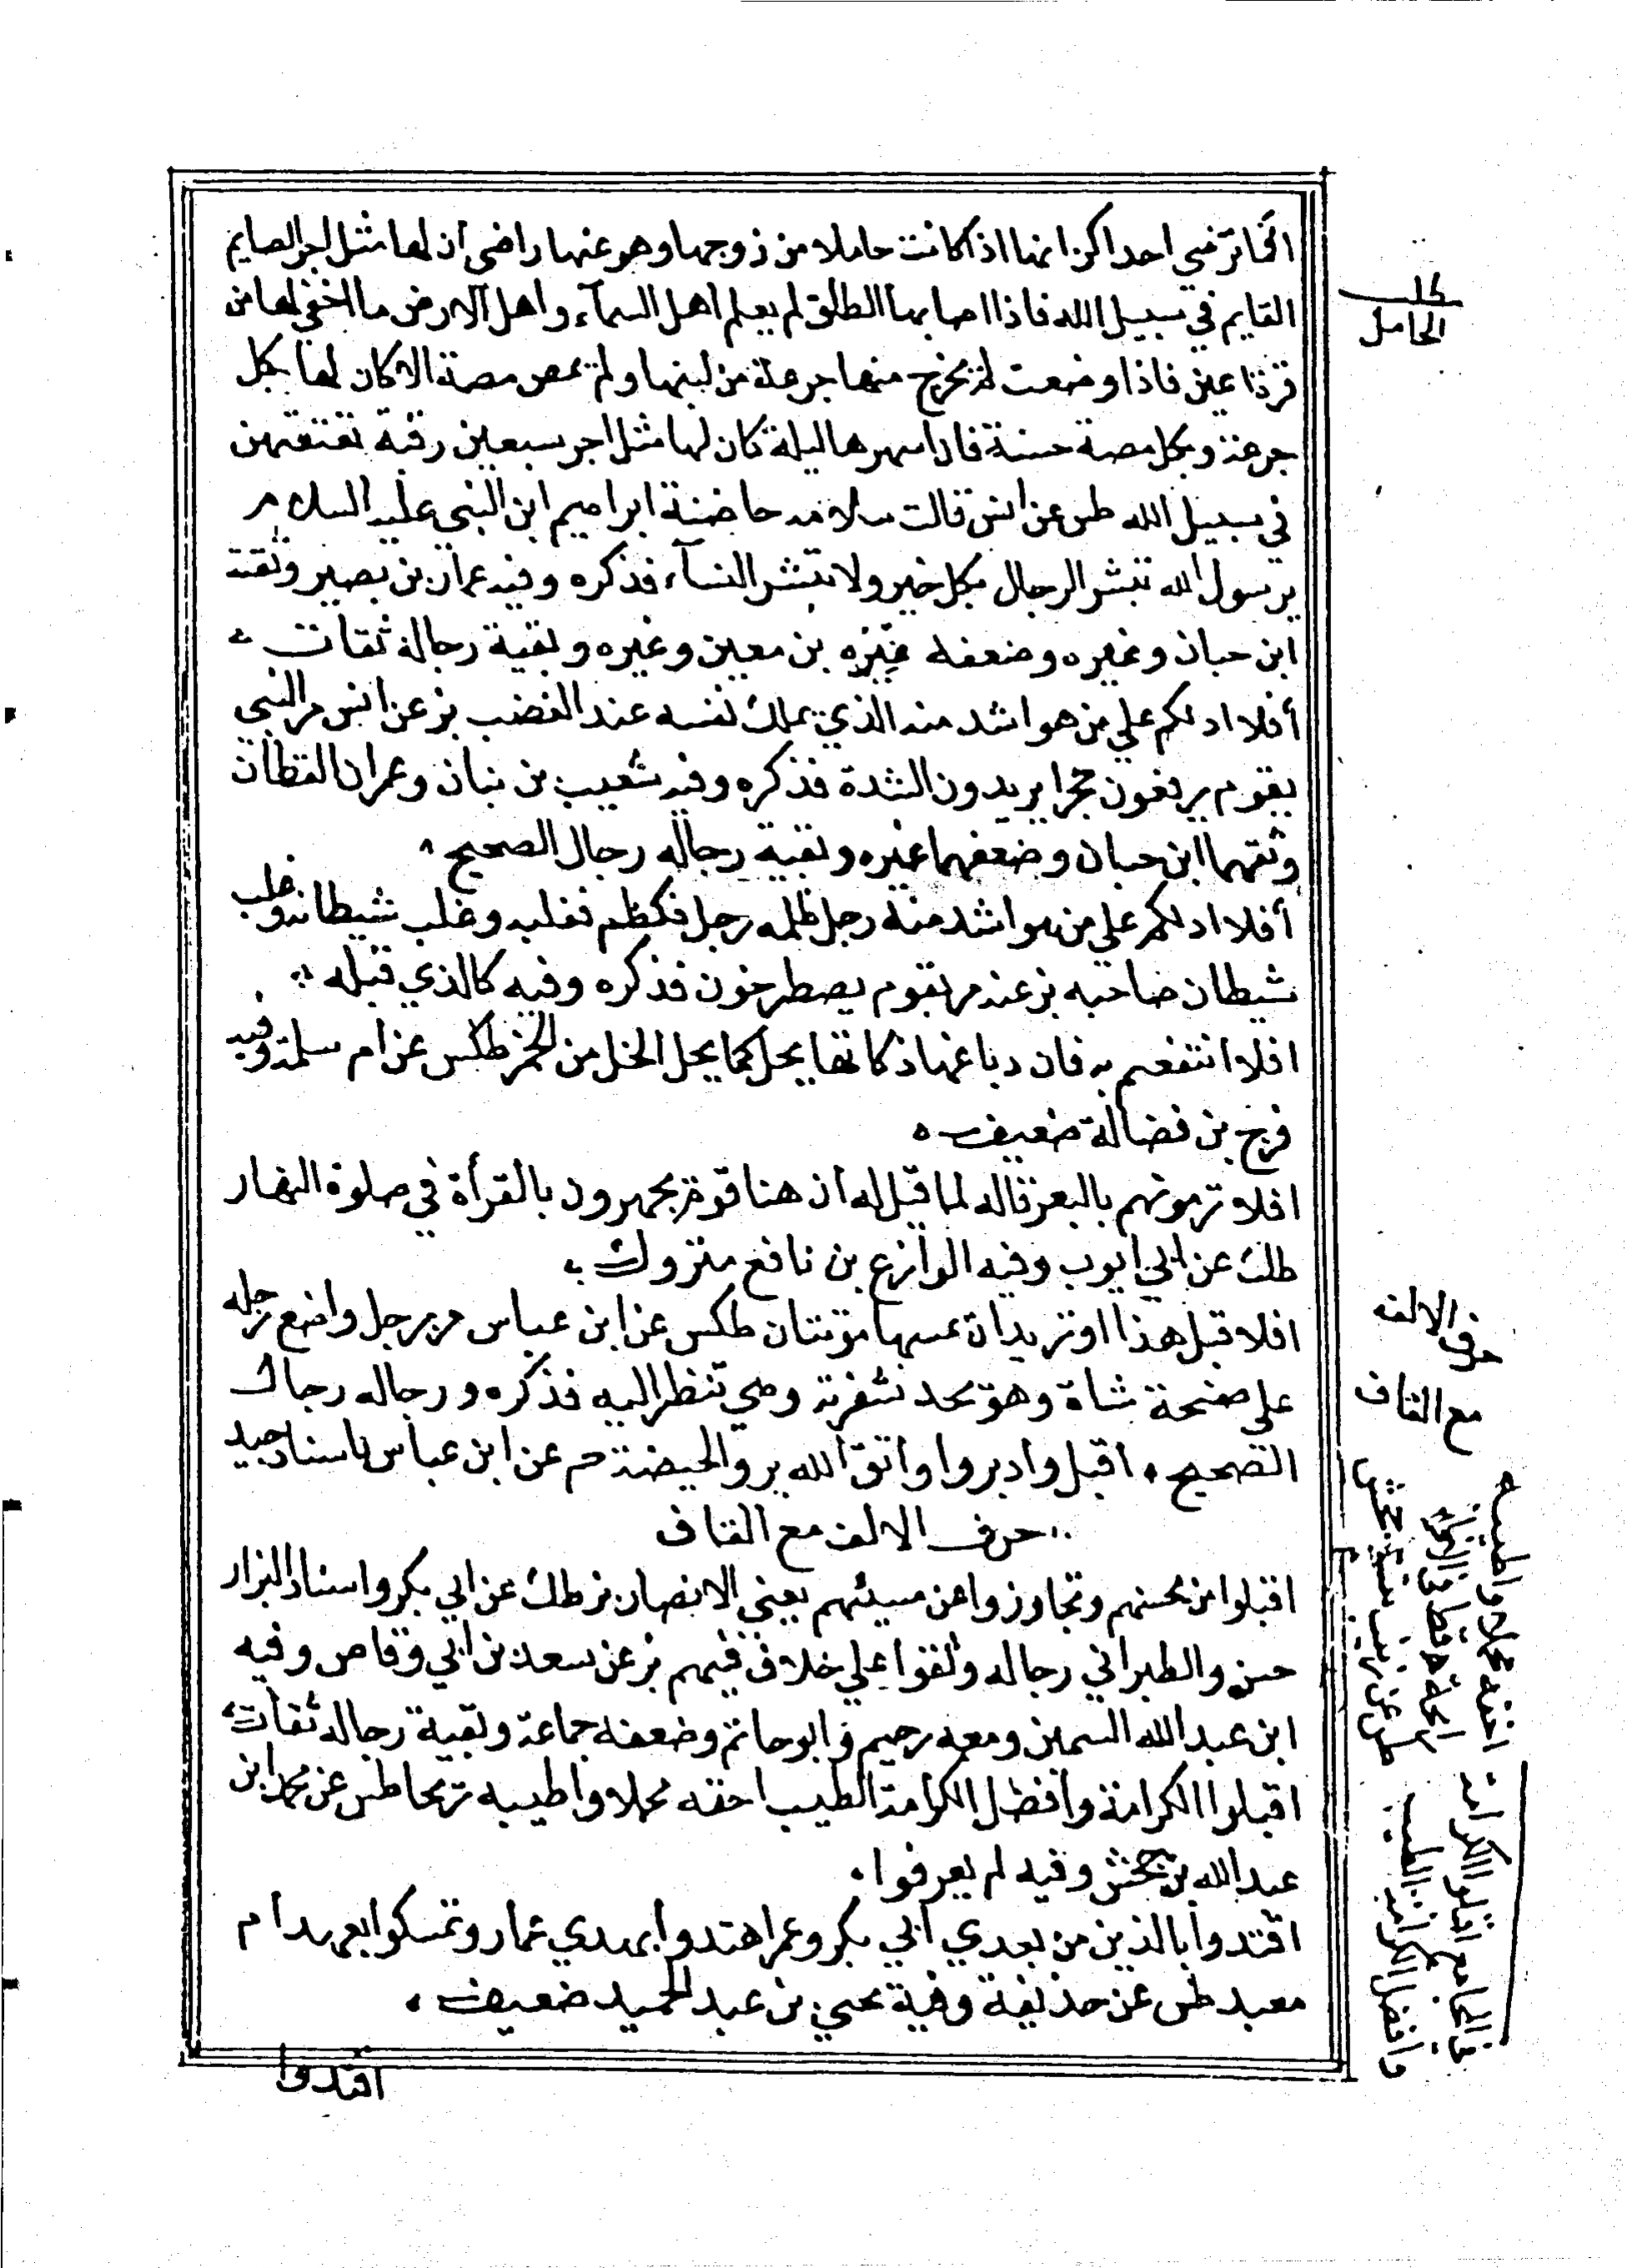 افما ترضي احداكن انها اذا كانت حاملا من زوجها وهو عنها راضي ان لها مثل اجر الصايم
القايم في سبيل الله فاذا اصابها الطلق لم يعلم اهل السماء واهل الارض ما اخفي لها من
قرة اعين فاذا وضعت لم يخرج منها جرعة من لبنها ولم يمص مصة الا كان لها بكل
جرعة وبكل مصة حسنة فان اسهرها ليلة كان لها مثل اجر سبعين رقبة تعتقهن
في سبيل الله طس عن انس قالت سلامه حاضنة ابراهيم ابن النبي عليه السلام
يرسول الله تبشر الرجال بكل خير ولا تبشر النساء فذكره وفيه عمار بن نصير وثقه
ابن حبان وغيره وضعفه بن معين وغيره وبقية رجاله ثقات
أفلا ادلكم علي من هو اشد منه الذي يملك نفسه عند الغضب بز عن انس مر النبي
بقوم يرفعون حجرا يريدون الشدة فذكره وفيه شعيب بن بنان وعمران القطان
وثقهما ابن حبان وضعفهما غيره وبقية رجاله رجال الصحيح
أفلا ادلكم علي من هو اشد منه رجل ظلمه رجل فكظم فغلبه وغلب شيطانه وغلب
شيطان صاحبه بز عنه مر بقوم يصطرخون فذكره وفيه كالذي قبله
افلا انتفعتم به فان دباغها ذكاتها يحل كما يحل الخل من الخمر طكس عن ام سلمة وفيه
فرج بن فضالة ضعيف
افلا ترمونهم بالبعر قاله لما قيل له ان هنا قوم يجهرون بالقرأة في صلوة النهار
طك عن ابي ايوب وفيه الوازع بن نافع متروك
افلا قبل هذا اوتريد ان تميتها موتتان طكس عن ابن عباس مر برجل واضع رجله
علي صفحة شاة وهو يحد شفرته وهي تنظر اليه فذكره ورجاله رجال
الصحيح اقبل وادبر واتق الدبر والحيضة حم عن ابن عباس باسناد جيد
حرف الالف مع القاف
اقبلوا من محسنهم وتجاوزوا عن مسيئهم يعني الانصار بز طك عن ابي بكر واسناد البزار
حسن والطبراني رجاله وثقوا علي خلاف فيهم بز عن سعد بن ابي وقاص وفيه
ابن عبد الله السمين ومعه رحيم وابو حاتم وضعفه جماعة وبقية رجاله ثقات
اقبلوا الكرامة وافضل الكرامة الطيب اخفه محملا واطيبه ريحا طس عن محمد ابن
عبد الله بن جحش وفيه لم يعرفوا
اقتدوا بالذين من بعدي ابي بكر وعمر اهتدوا بهدي عمار وتمسكوا بعهد ام
معبد طس عن حذيفة وفية يحيي بن عبد الحميد ضعيف
اقتدوا
الحامل
حرف الالف
مع القاف
في الجامع اقبلوا الكرامة
وافضل الكرامة الطيب
اخفه محملا واطيبه